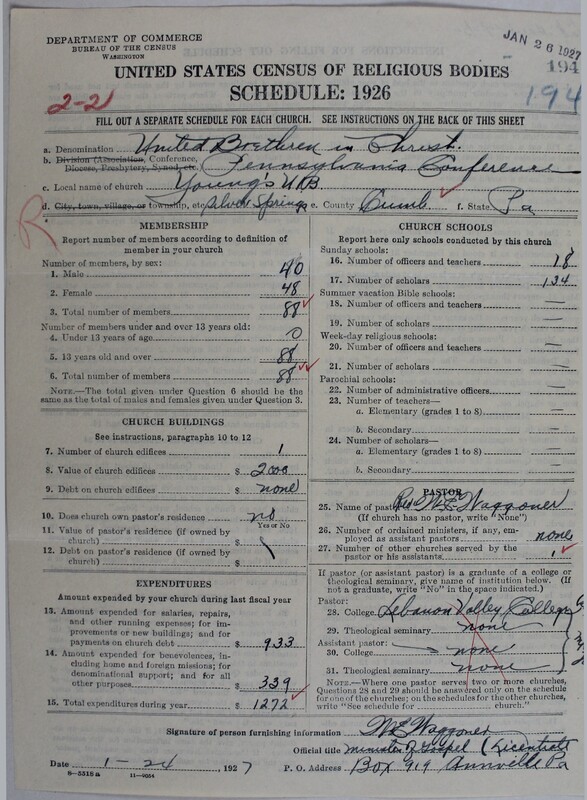 DEPARTMENT OF COMMERCE
BUREAU OF THE CENSUS
WASHINGTON
JAN 26 1927
194
194
UNITED STATES CENSUS OF RELIGIOUS BODIES
SCHEDULE: 1926
2-21
FILL OUT A SEPARATE SCHEDULE FOR EACH CHURCH. SEE INSTRUCTIONS ON THE BACK OF THIS SHEET
a. Denomination United Brethren in Christ.
b. Division (Association, Conference,
Diocese, Presbytery, Synod, etc. Pennsylvania Conference
c. Local name of church Young's U.B.
d. City, town, village, or township, etc. Silver Springs e. County Cumb. f. State Pa
R
MEMBERSHIP
Report number of members according to definition of
member in your church
Number of members, by sex:
1. Male 40
2. Female 48
3. Total number of members 88
Number of members under and over 13 years old:
4. Under 13 years of age 0
5. 13 years old and over 88
6. Total number of members 88
NOTE.—The total given under Question 6 should be
same as the total of males and females given under Question 3.
CHURCH BUILDINGS
See instructions, paragraphs 10 to 12
7. Number of church edifices 1
8. Value of church edifices $ 2000
9. Debt on church edifices $ none
10. Does church own pastor's residence no
Yes or No
11. Value of pastor's residence (if owned by
church) $
12. Debt on pastor's residence (if owned by
church) $
EXPENDITURES
Amount expended by your church during last fiscal year
13. Amount expended for salaries, repairs,
and other running expenses; for im-
provements or new buildings; and for
payments on church debt $ 933
14. Amount expended for benevolences,
including home and foreign missions; for
denominational support; and for all
other purposes $ 339
15. Total expenditures during year $ 1272
CHURCH SCHOOLS
Report here only schools conducted by this church
Sunday schools:
16. Number of officers and teachers 18
17. Number of scholars 134
Summer vacation Bible schools:
18. Number of officers and teachers —
19. Number of scholars —
Week-day religious schools:
20. Number of officers and teachers —
21. Number of scholars —
Parochial schools:
22. Number of administrative officers —
23. Number of teachers—
a. Elementary (grades 1 to 8) —
b. Secondary —
24. Number of scholars—
a. Elementary (grades 1 to 8) —
b. Secondary —
PASTOR
25. Name of pastor Rev M E Waggoner
(If church has no pastor, write "None")
26. Number of ordained ministers, if any, em-
ployed as assistant pastors none
27. Number of other churches served by the
pastor or his assistants 1
If pastor (or assistant pastor) is a graduate of a college or
theological seminary, give name of institution below. (If
not a graduate, write "No" in the space indicated.)
Pastor:
28. College Lebanon Valley College
29. Theological seminary none
Assistant pastor:
30. College none
31. Theological seminary none
NOTE.—Where one pastor serves two or more churches,
Questions 28 and 29 should be answered only on the schedule
for one of the churches; on the schedules for the other churches,
write "See schedule for church."
Signature of person furnishing information M E Waggoner
Official title minister of Gospel (Licentiate
Date 1-24, 1927 P. O. Address Box 919 Annville Pa
8—5318 a 11—9054